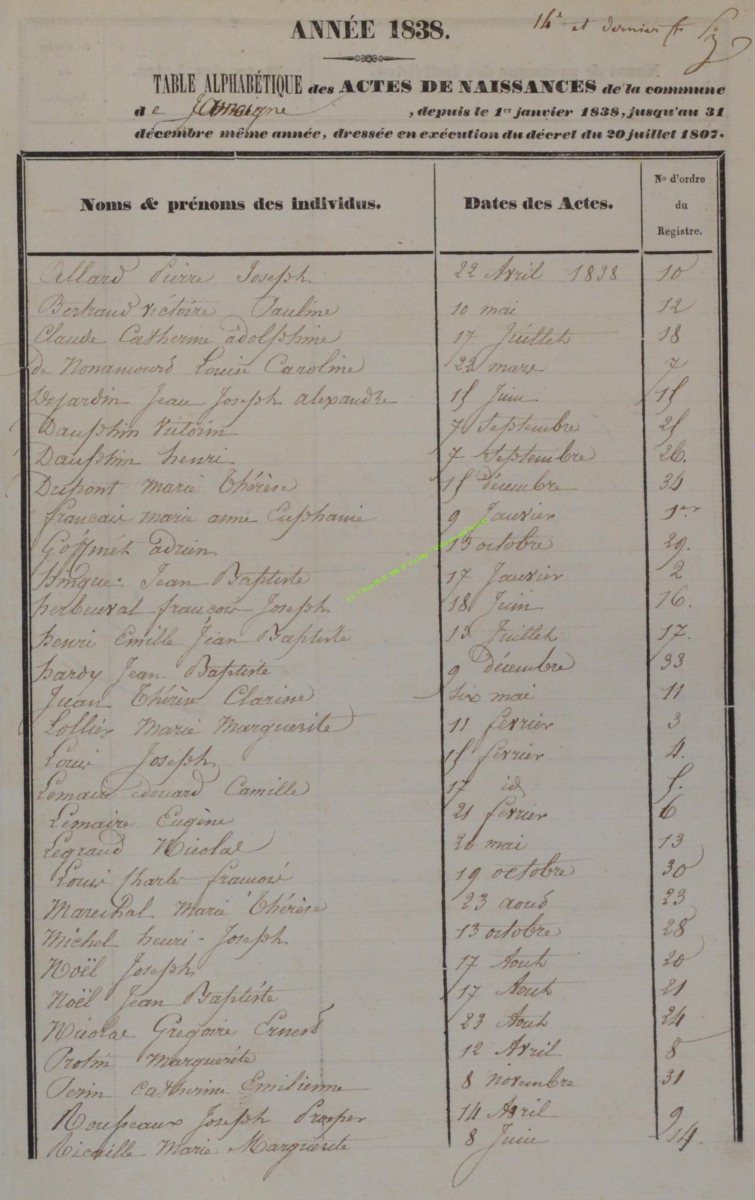 ANNÉE 1838.
14e et dernier f
TABLE ALPHABÉTIQUE des ACTES DE NAISSANCES de la commune
de Jamoigne , depuis le 1er janvier 1838, jusqu'au 31
décembre même année, dressée en exécution du décret du 20 juillet 1807.
Noms & prénoms des individus. Dates des Actes. No d'ordre du Registre.
Allard Pierre Joseph 22 Avril 1838 10
Bertrand victoire Pauline 10 mai 12
Claude Catherine adolphine 17 Juillet 18
de Nonamourd Louise Caroline 22 mars 7
Dejardin Jean Joseph alexandre 15 Juin 15
Dauphin Victorin 7 Septembre 25
Dauphin henri 7 Septembre 26.
Dupont marie thérèse 15 décembre 34
francois marie anne Euphanie 9 Janvier 1er
Goffinét adrien 13 octobre 29.
Jean Baptiste 17 Janvier 2
herbeuval francois Joseph 18 Juin 16.
henri Emille Jean Baptiste 13 Juillet 17.
hardy Jean Baptiste 9 Décembre 33
Juan Thérèse Clarine six mai 11
Lollier Marie Marguerite 11 fevrier 3
Louis Joseph 15 fevrier 4.
Lemaire edouard Camille 17 id 5.
Lemaire Eugène 21 fevrier 6
Legrand Nicolas 20 mai 13
Louis Charles francois 19 octobre 30
Marechal Marie Thérèse 23 aoud 23
Michel henri-Joseph 13 octobre 28
Noël Joseph 17 Aout 20
Noël Jean Baptiste 17 Aout 21
Nicolas Gregoire Ernest 23 Aout 24
Protin Marguerite 12 Avril 8
Perin Catherine Emilienne 8 novembre 31
Rousseaux Joseph Prosper 14 Avril 9
Nicaille Marie Marguerite 8 Juin 14.